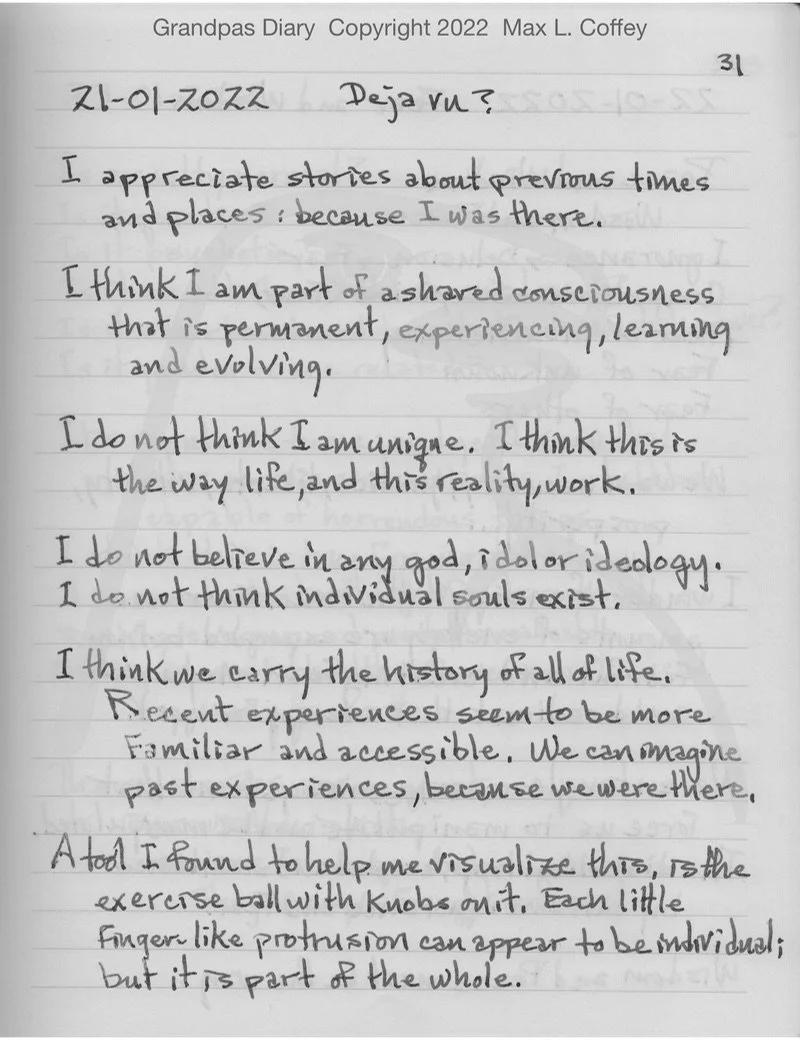 Grandpas Diary Copyright 2022 Max L. Coffey
31
21-01-2022 Deja vu?
I appreciate stories about previous times
and places: because I was there.
I think I am part of a shared consciousness
that is permanent, experiencing, learning
and evolving.
I do not think I am unique. I think this is
the way life, and this reality, work.
I do not believe in any god, idol or ideology.
I do not think individual souls exist.
I think we carry the history of all of life.
Recent experiences seem to be more
familiar and accessible. We can imagine
past experiences, because we were there.
A tool I found to help me visualize this, is the
exercise ball with knobs on it. Each little
finger-like protrusion can appear to be individual;
but it is part of the whole.